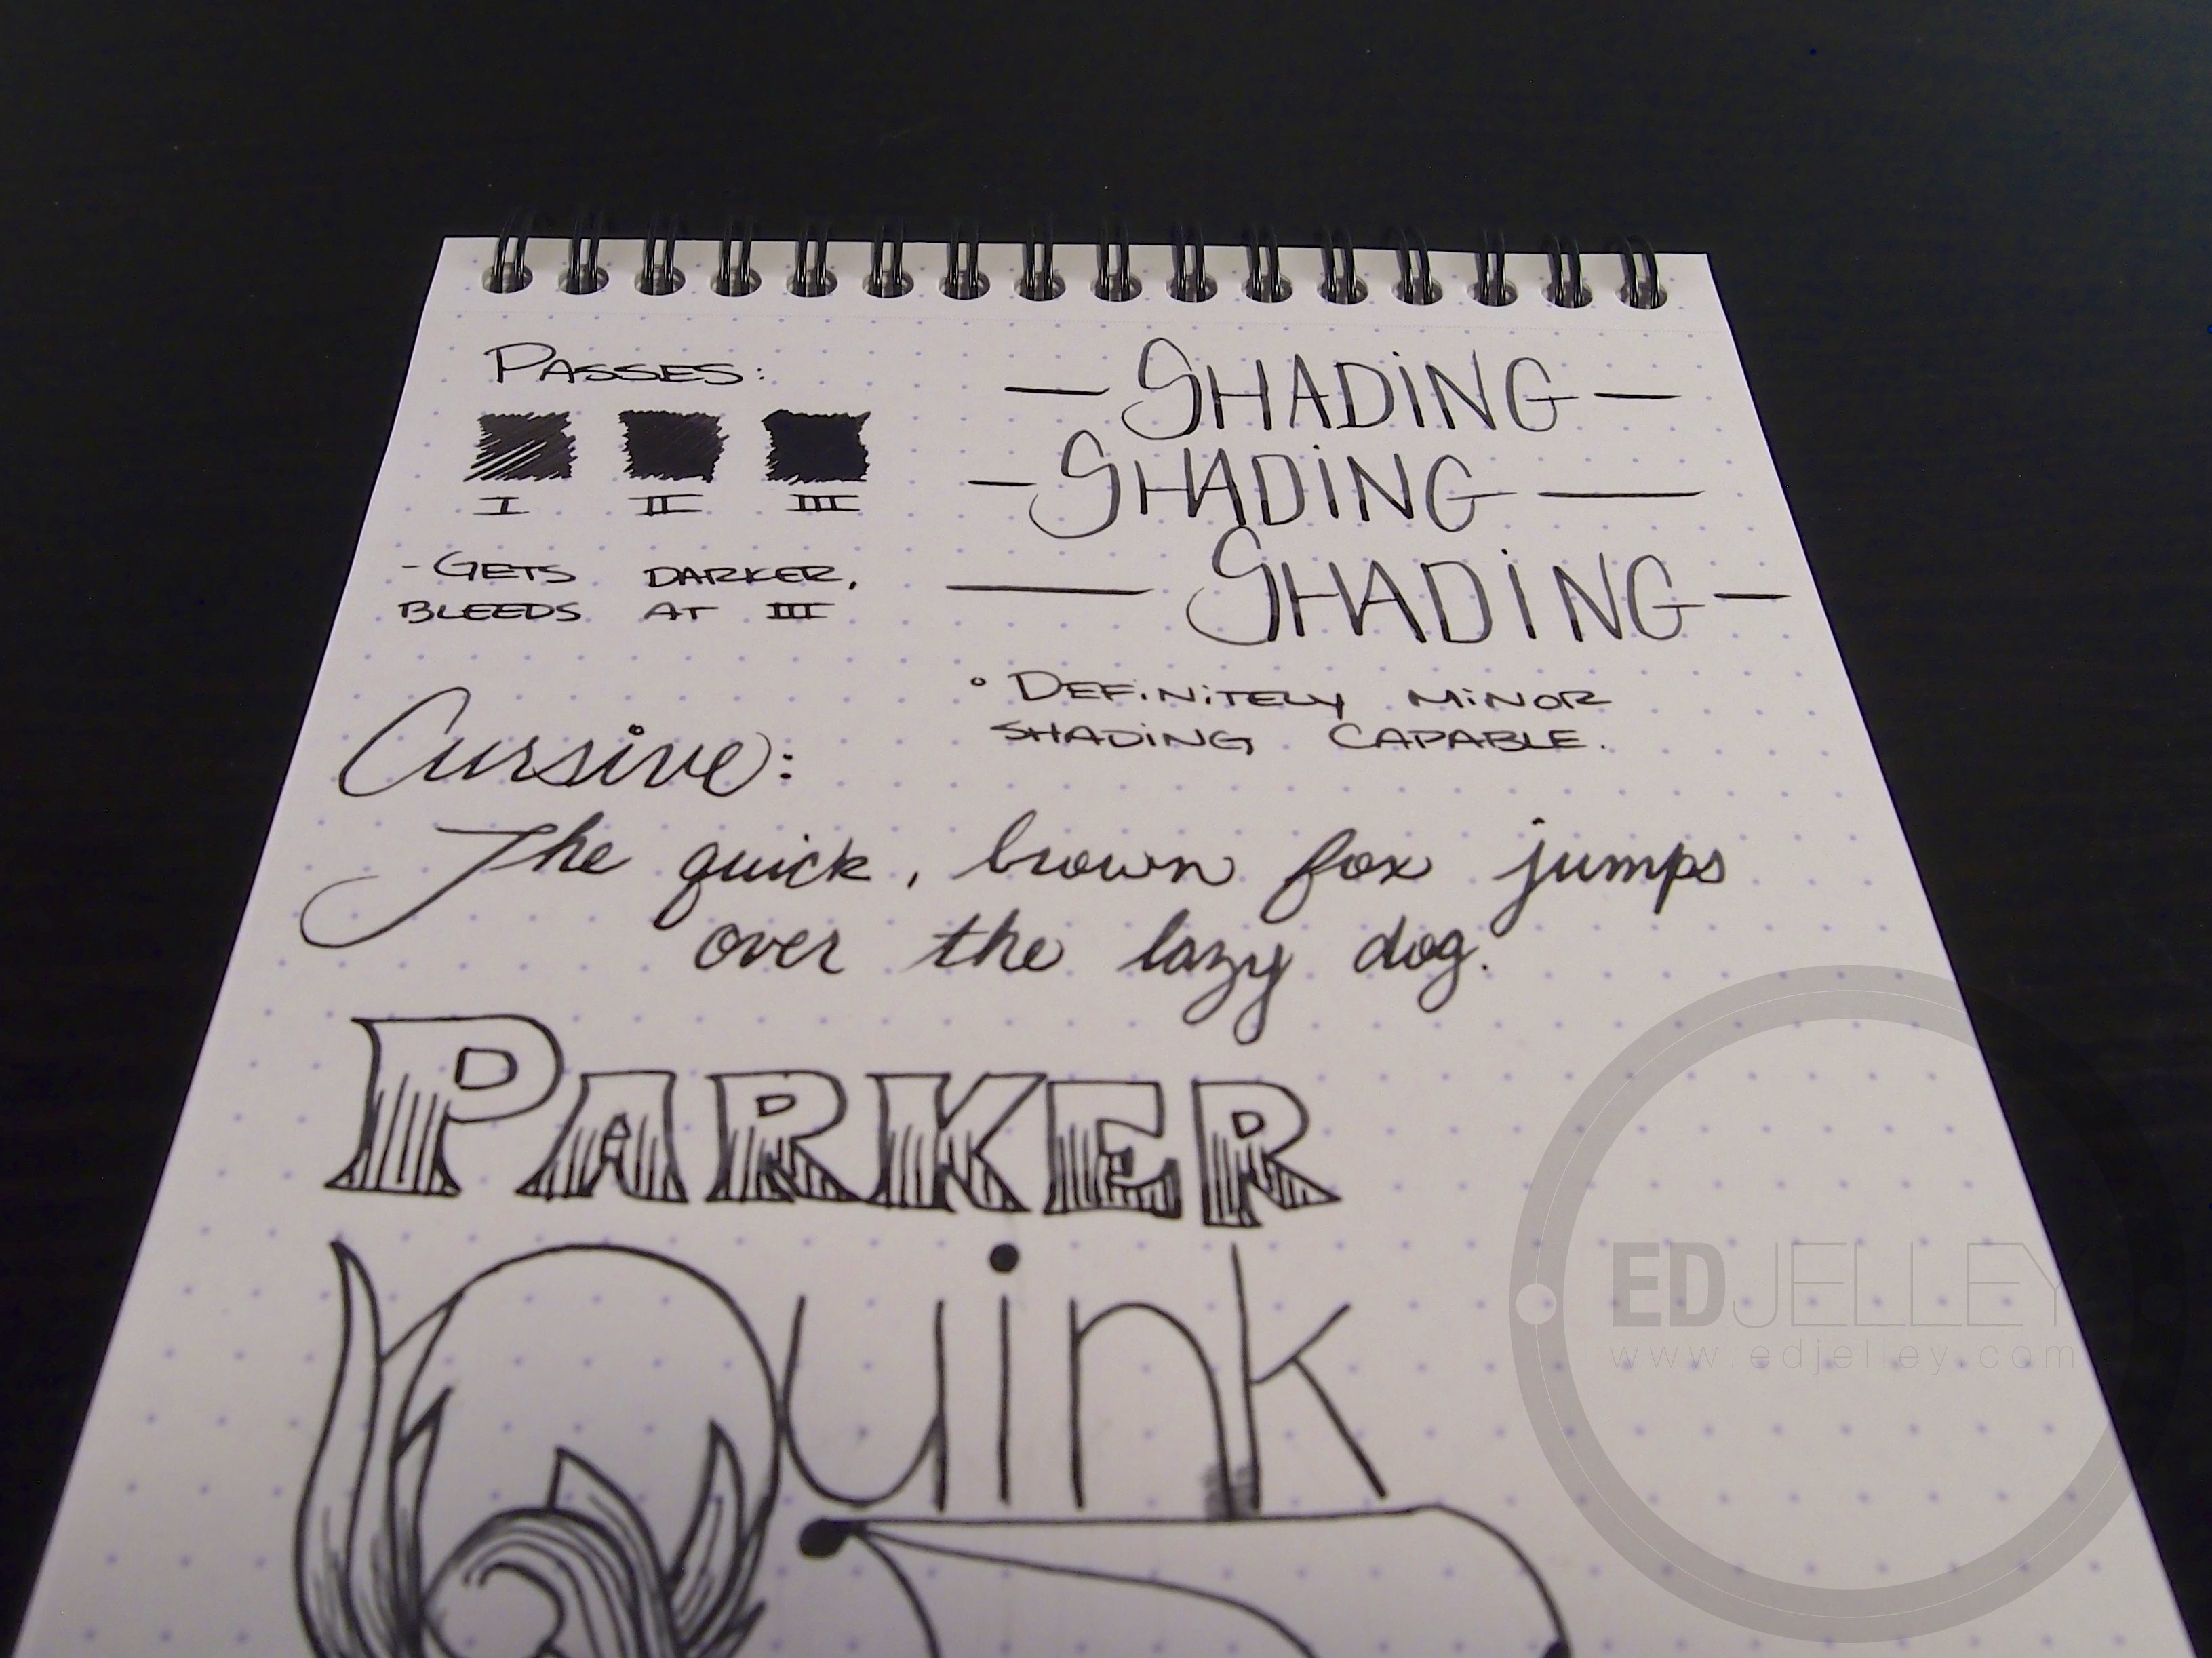 PASSES:
I II III
- GETS DARKER,
BLEEDS AT III
— SHADiNG —
— SHADiNG —
— SHADiNG —
° DEFiNiTELY MiNOR
SHADiNG CAPABLE.
Cursive:
The quick, brown fox jumps
over the lazy dog.
PARKER
Quink
EDJELLEY
www.edjelley.com